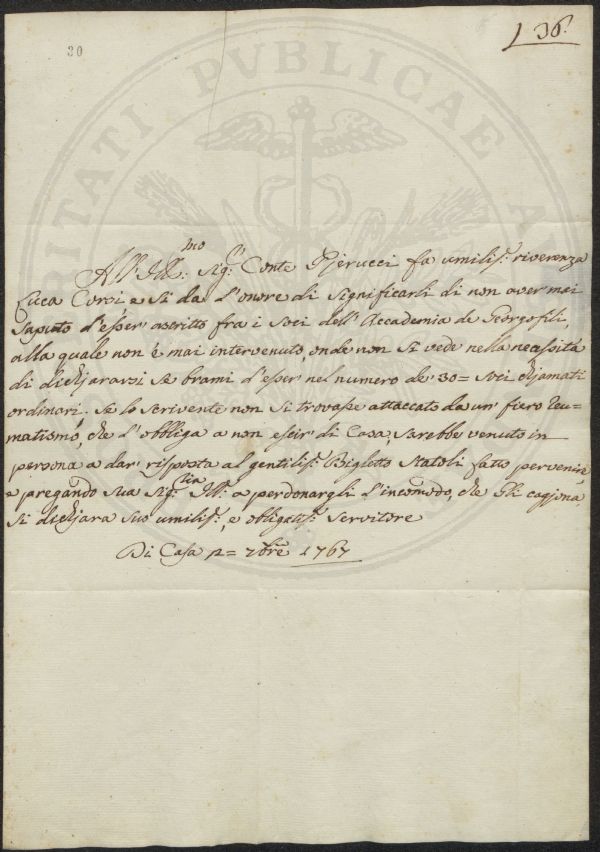 30
136.
PVBLICAE
All' Ill:mo Sig:r Conte Pierucci fa umilis:a riverenza
Luca Corsi e si da l'onore di significarli di non aver mai
saputo d'esser ascritto fra i soci dell'Accademia de Georgofili,
alla quale non è mai intervenuto, onde non si vede nella necessità
di dichiararsi se brami d'esser nel numero de' 30= soci chiamati
ordinari. Se lo scrivente non si trovasse attaccato da un' fiero Reu=
matismo, che l'obbliga a non escir di Casa, sarebbe venuto in
persona a dar' risposta al gentilis:o Biglietto statoli fatto pervenire,
e pregando Sua Sig:ria Ill: a perdonargli l'incomodo, che Gli cagiona,
si dichiara suo umilis:o, e obbligatis:o servitore
Di Casa 12= 7bre 1767